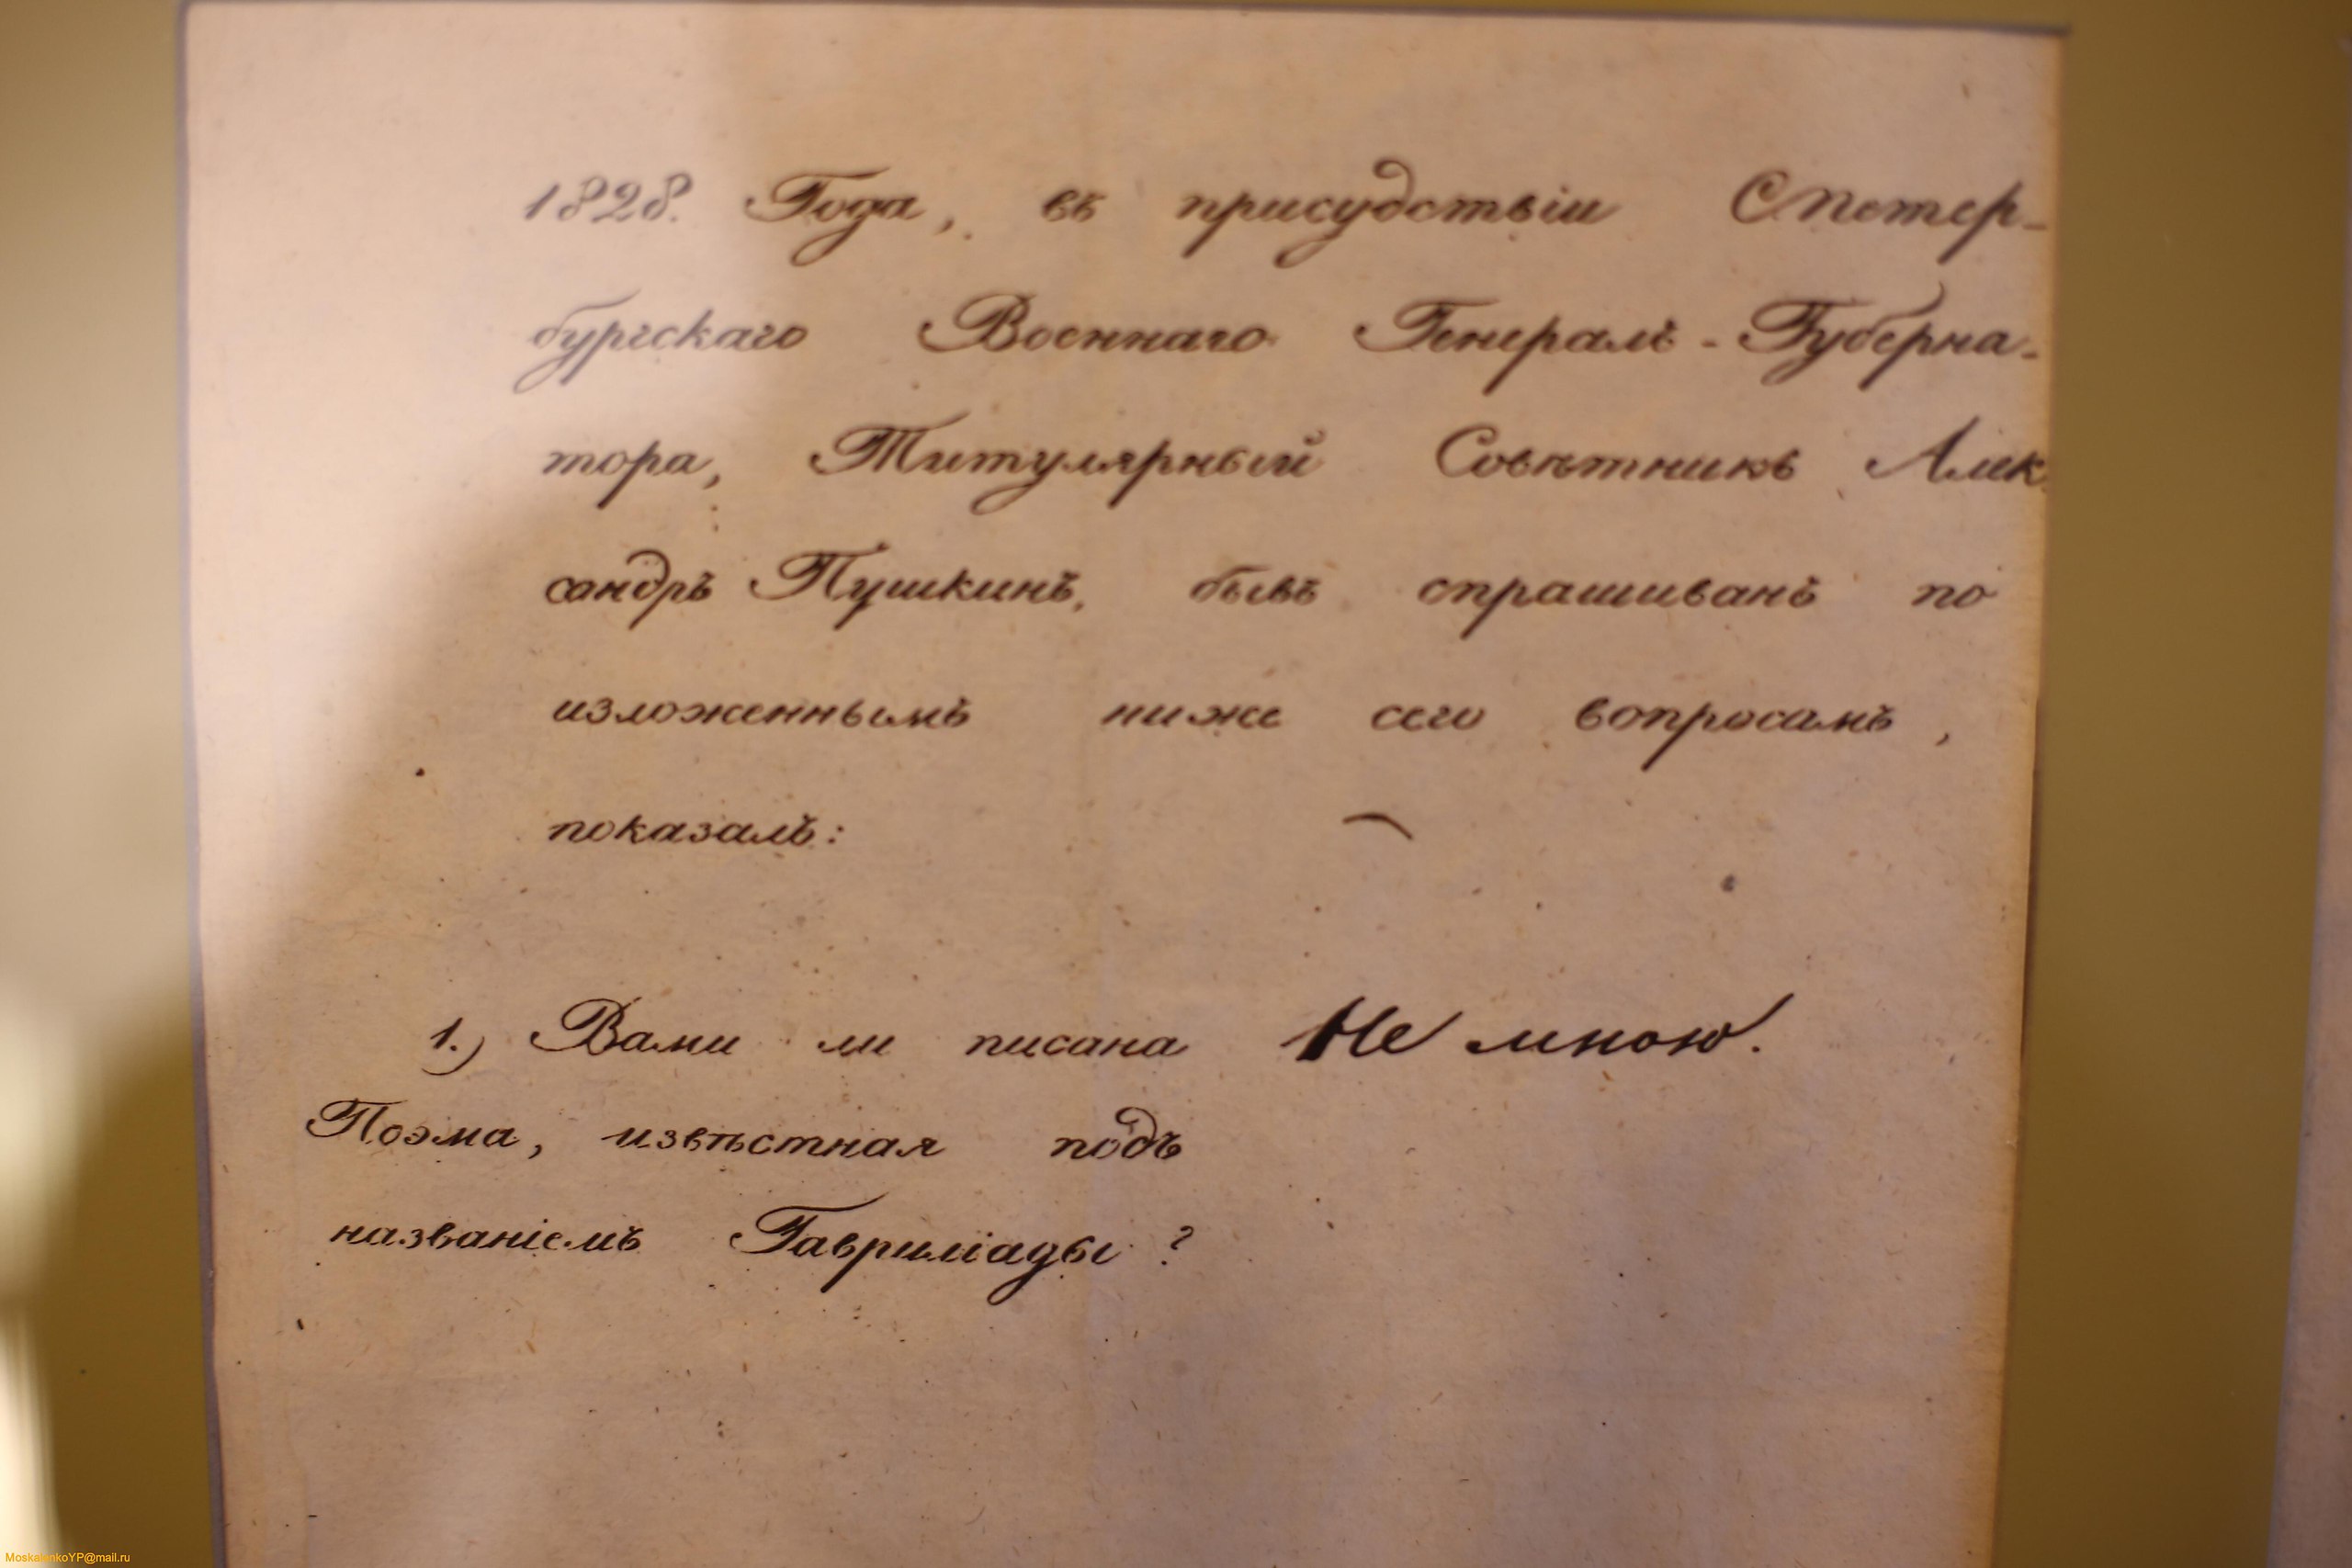 1828. Года, въ присудствіи Спетер-
бургскаго Военнаго Генералъ-Губерна-
тора, Титулярный Совѣтникъ Алек
сандръ Пушкинъ, бывъ спрашиванъ по
изложеннымъ ниже сего вопросамъ,
показалъ:
1.) Вами ли писана Не мною.
Поэма, извѣстная подъ
названіемъ Гавриліады?
MoskalenkoYP@mail.ru